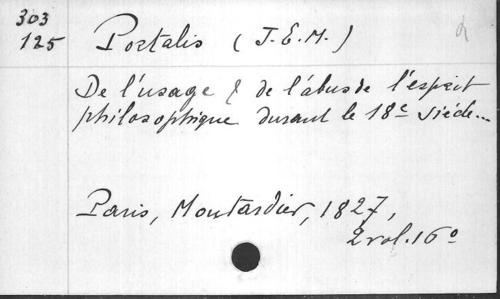 303
125 Portalis (J.-E.M.)
De l'usage & de l'abus de l'esprit
philosophique durant le 18e siècle...
Paris, Moutardier, 1827,
2 vol. 16o